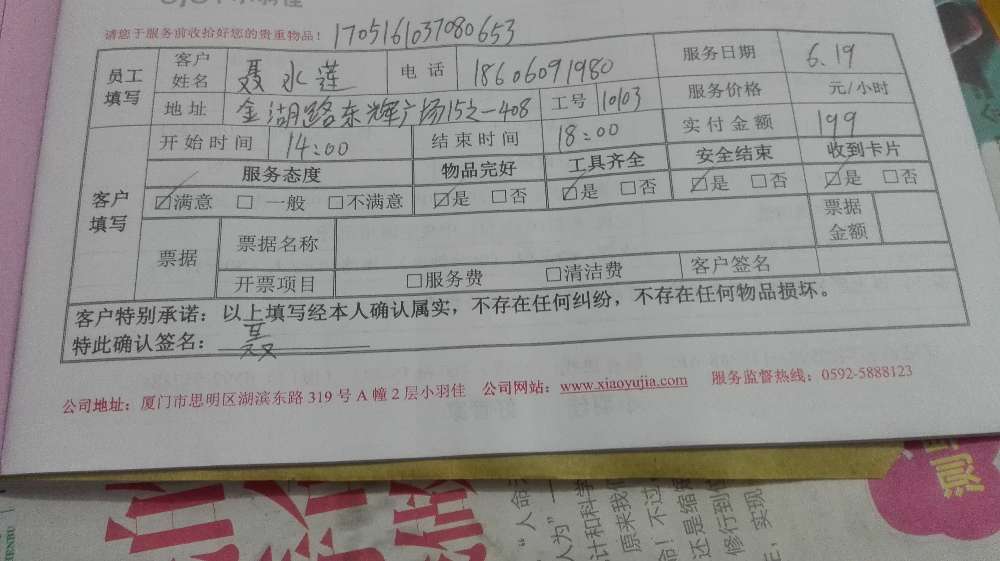 请您于服务前收拾好您的贵重物品！ 1705161037080653
员工填写 客户姓名 聂水莲 电话 18606091980 服务日期 6.19
地址 金湖路东辉广场15之一408 工号 10103 服务价格 元/小时
客户填写 开始时间 14:00 结束时间 18:00 实付金额 199
服务态度 物品完好 工具齐全 安全结束 收到卡片
☑满意 □一般 □不满意 ☑是 □否 ☑是 □否 ☑是 □否 ☑是 □否
票据 票据名称 票据金额
开票项目 □服务费 □清洁费 客户签名
客户特别承诺：以上填写经本人确认属实，不存在任何纠纷，不存在任何物品损坏。
特此确认签名：聂
公司地址：厦门市思明区湖滨东路319号A幢2层小羽佳 公司网站：www.xiaoyujia.com 服务监督热线：0592-5888123